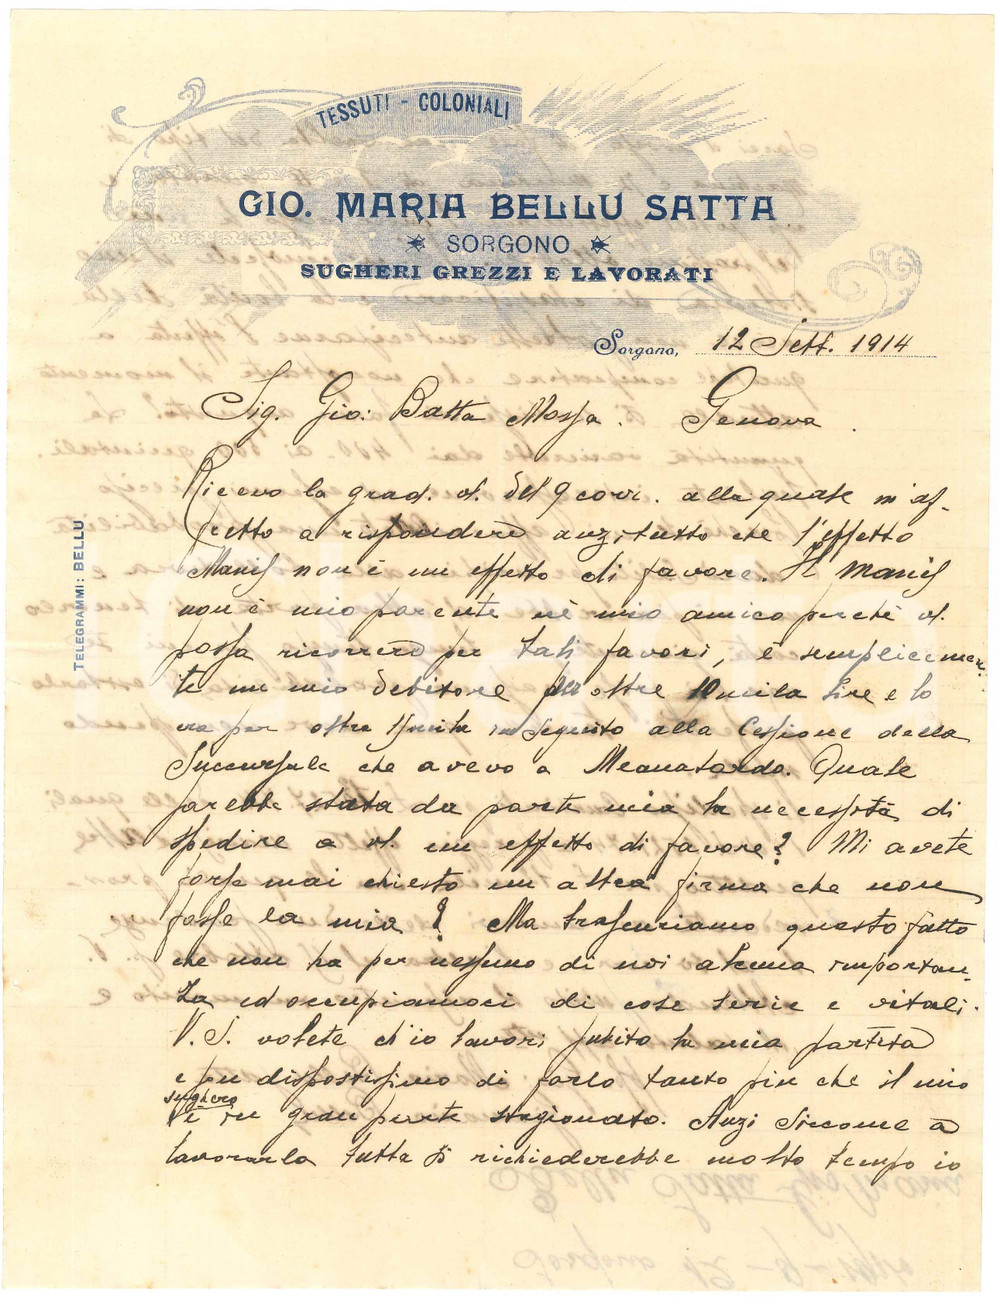 TESSUTI - COLONIALI
GIO. MARIA BELLU SATTA
SORGONO
SUGHERI GREZZI E LAVORATI
Sorgono, 12 Sett. 1914
TELEGRAMMI: BELLU
Sig. Gio: Batta Mossa. Genova.
Ricevo la grad. vs. del 9 corr. alla quale m'af-
fretto a rispondere anzitutto che l'effetto
Manis non è un effetto di favore. Il Manis
non è mio parente nè mio amico perchè vs.
possa ricorrere per tali favori, è semplicemen-
te un mio debitore per oltre 10mila lire e lo
era per oltre in seguito alla Cessione della
Succursale che avevo a Meanasardo. Quale
sarebbe stata da parte mia la necessità di
spedire a vs. un effetto di favore? Mi avete
forse mai chiesto un altra firma che non
fosse la mia? Ma trascuriamo questo fatto
che non ha per nessuno di noi alcuna importan-
za ed occupiamoci di cose serie e vitali.
V.S. volete ch'io lavori subito la mia partita
e son dispostissimo di farlo tanto più che il mio
sughero
è in gran parte stagionato. Anzi siccome a
lavorarla tutta si richiederebbe molto tempo io